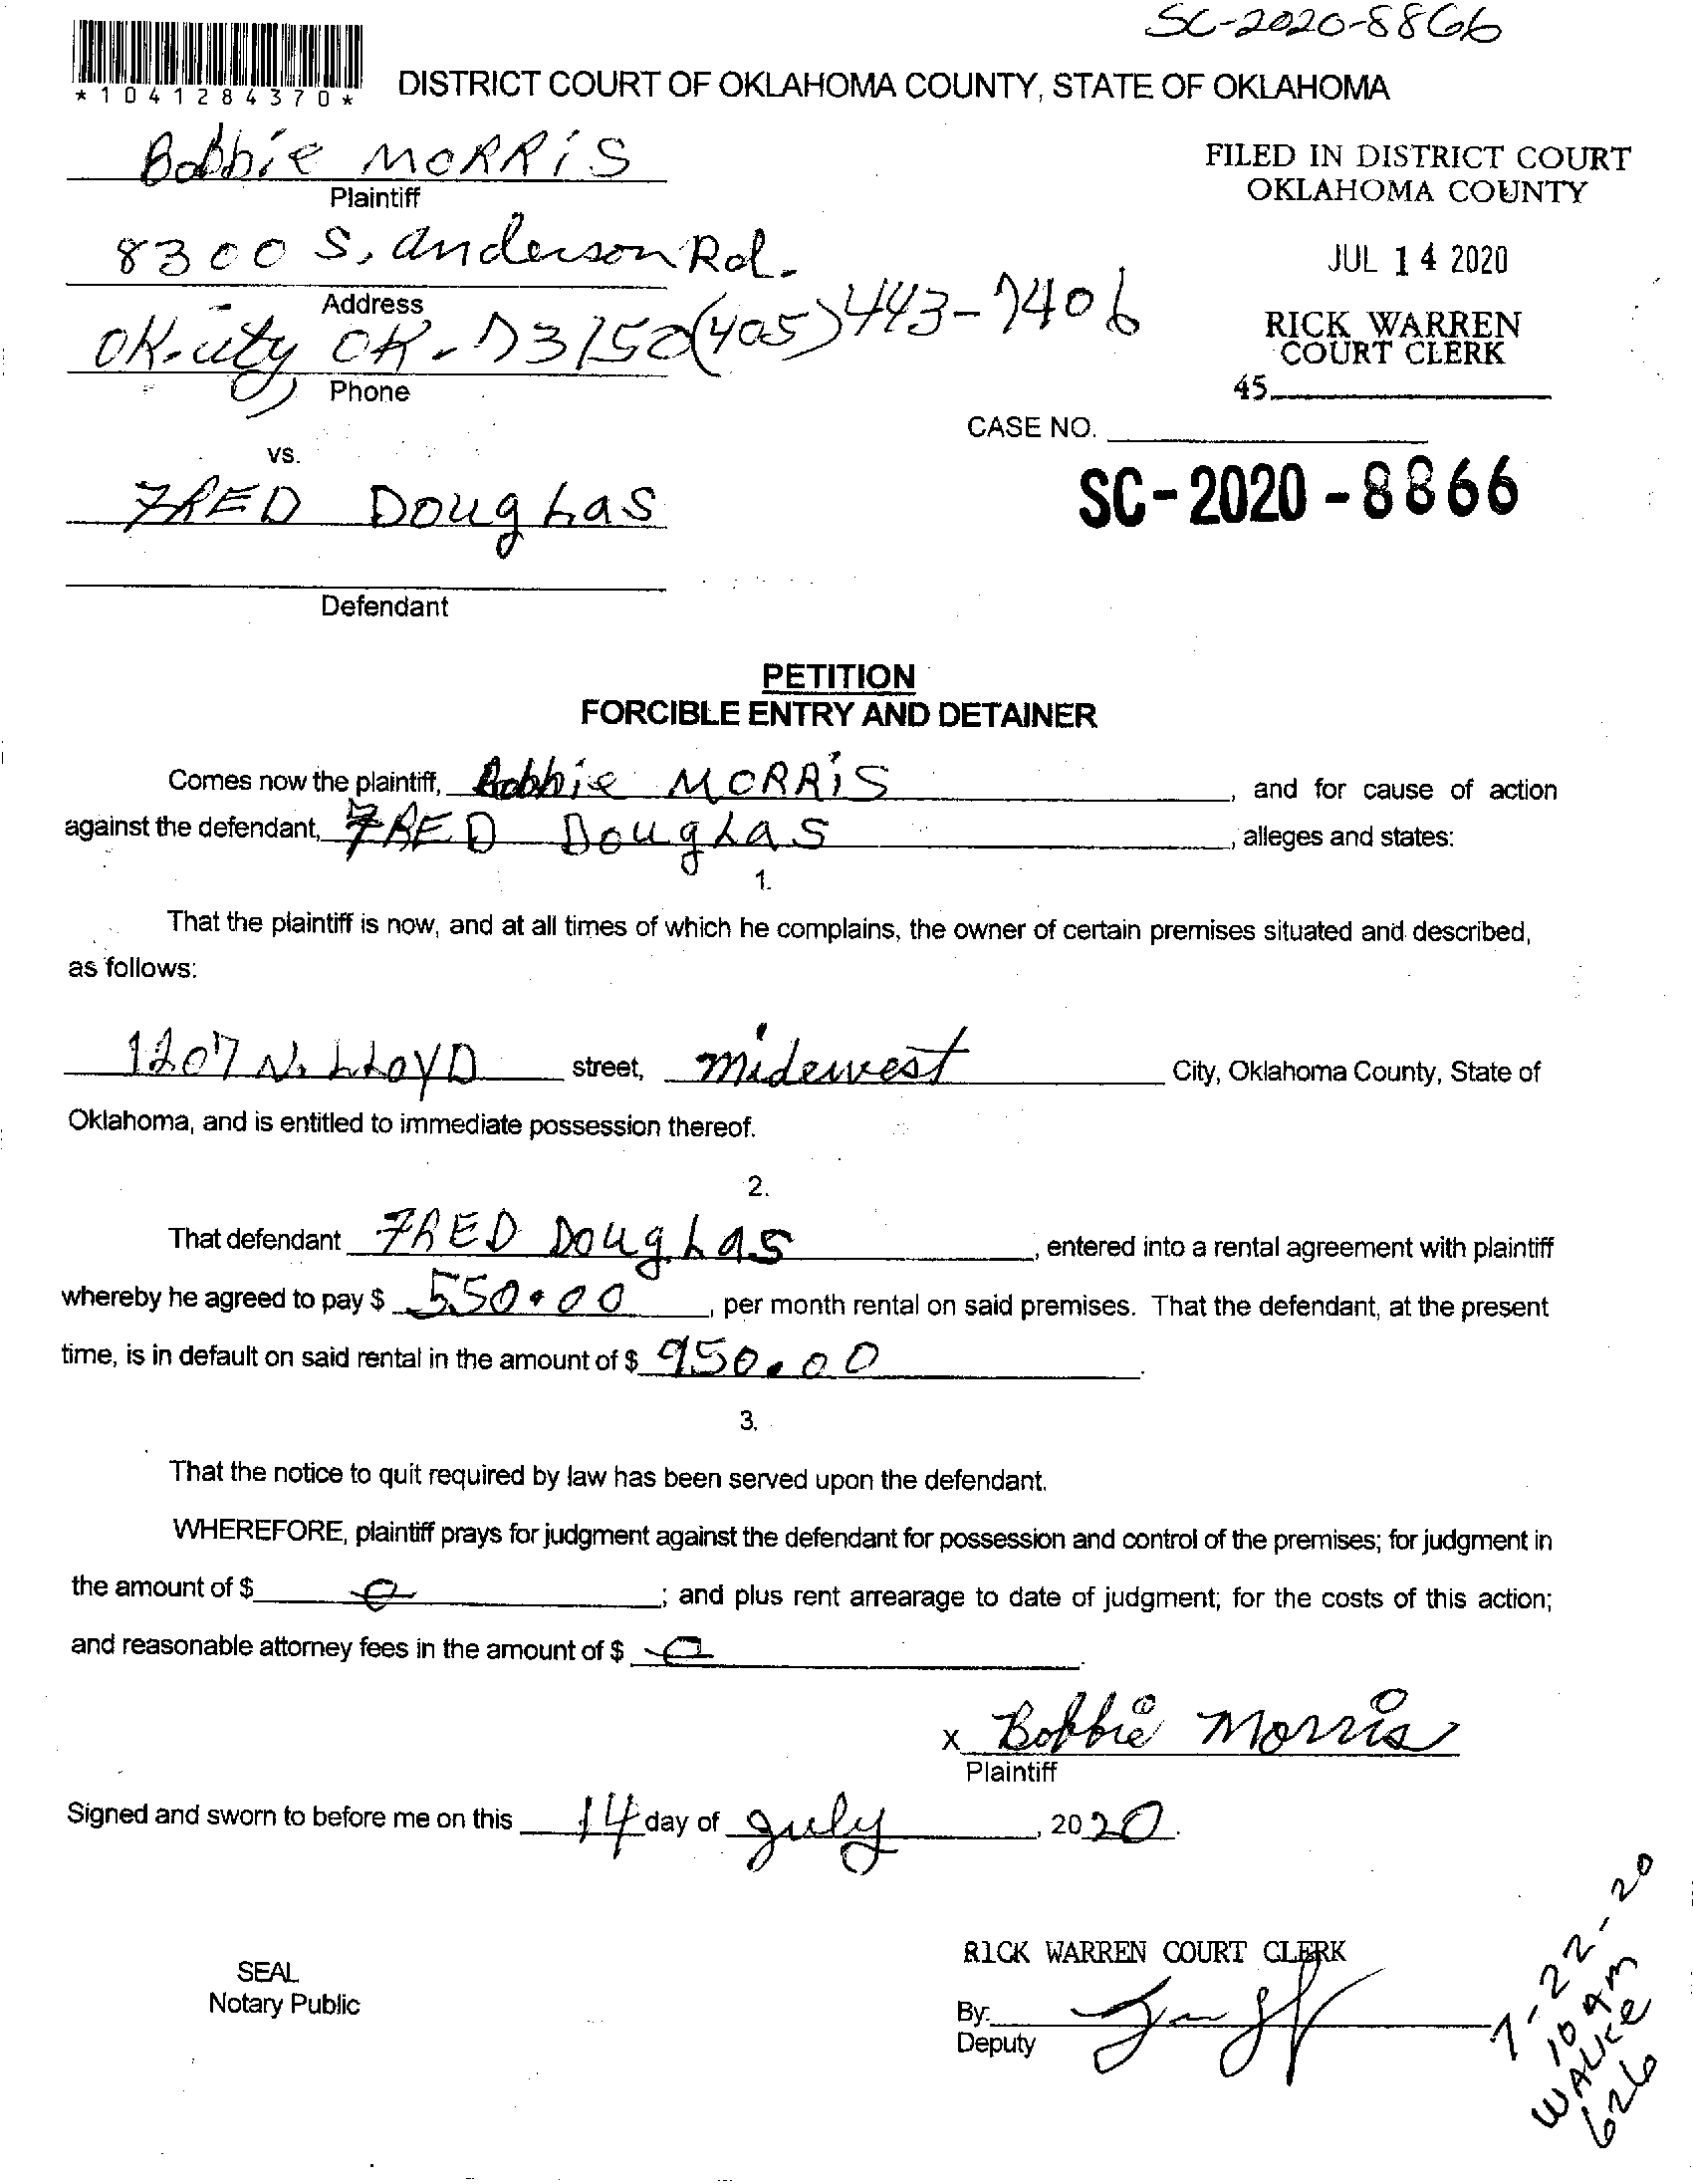 SC-2020-8866
*1041284370*
DISTRICT COURT OF OKLAHOMA COUNTY, STATE OF OKLAHOMA
Bobbie MORRiS
Plaintiff
FILED IN DISTRICT COURT
OKLAHOMA COUNTY
8300 S. Anderson Rd.
Address
JUL 14 2020
OK. city OK. 73150 (405) 443-7406
Phone
RICK WARREN
COURT CLERK
45
CASE NO.
vs.
SC-2020-8866
FRED DougLas
Defendant
PETITION
FORCIBLE ENTRY AND DETAINER
Comes now the plaintiff, Bobbie MORRiS, and for cause of action
against the defendant, FRED DougLas, alleges and states:
1.
That the plaintiff is now, and at all times of which he complains, the owner of certain premises situated and described,
as follows:
1207 N. LLOYD street, midewest City, Oklahoma County, State of
Oklahoma, and is entitled to immediate possession thereof.
2.
That defendant FRED DougLas, entered into a rental agreement with plaintiff
whereby he agreed to pay $ 550.00, per month rental on said premises. That the defendant, at the present
time, is in default on said rental in the amount of $ 950.00.
3.
That the notice to quit required by law has been served upon the defendant.
WHEREFORE, plaintiff prays for judgment against the defendant for possession and control of the premises; for judgment in
the amount of $ 0; and plus rent arrearage to date of judgment; for the costs of this action;
and reasonable attorney fees in the amount of $ 0.
x Bobbie Morris
Plaintiff
Signed and sworn to before me on this 14 day of July, 2020.
RICK WARREN COURT CLERK
SEAL
Notary Public
By:
Deputy
7-22-20
10 am
WALKE
626